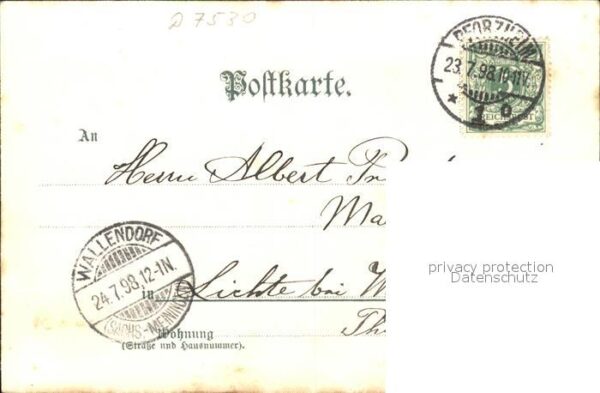 D 7530
PFORZHEIM
23.7.98.10-11V.
* 1 c
REICHSPOST
Postkarte.
An
Herrn Albert
Ma
WALLENDORF
24.7.98.12-1N.
(SACHS.-MEINING.)
privacy protection
Datenschutz
in Lichte bei W
Th
Wohnung
(Straße und Hausnummer).